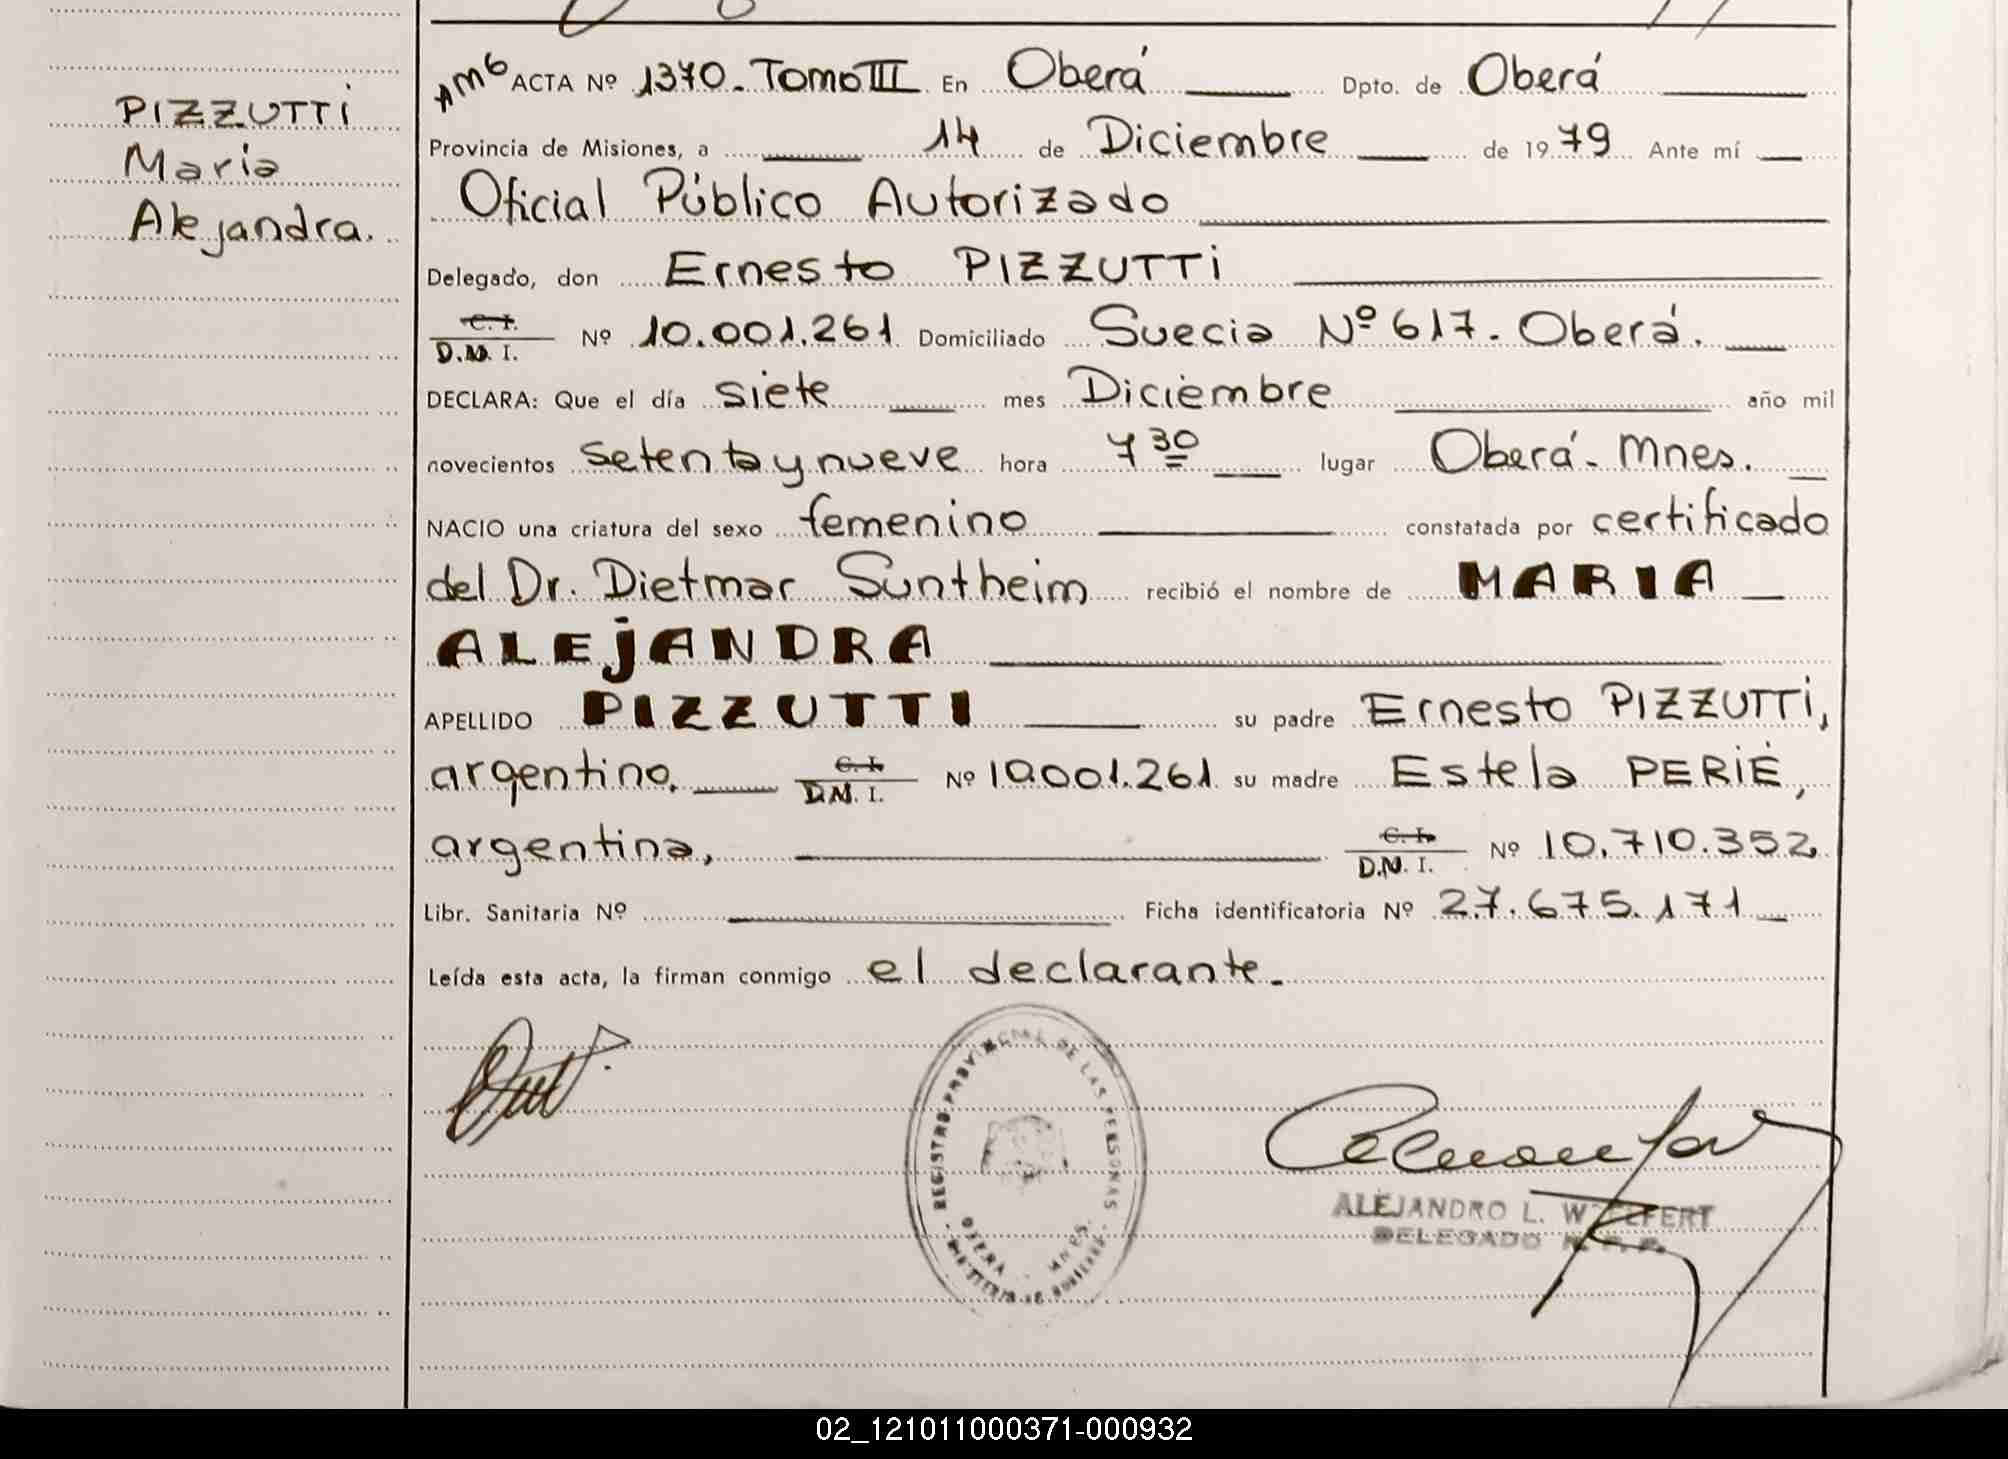 PIZZUTTI
Maria
Alejandra.
AMG ACTA Nº 1370. Tomo III En Oberá Dpto. de Oberá
Provincia de Misiones, a 14 de Diciembre de 1979 Ante mí
Oficial Público Autorizado
Delegado, don Ernesto PIZZUTTI
C. I.
D.N. I. Nº 10.001.261 Domiciliado Suecia Nº 617. Oberá.
DECLARA: Que el día siete mes Diciembre año mil
novecientos setenta y nueve hora 7 30 lugar Oberá- Mnes.
NACIO una criatura del sexo femenino constatada por certificado
del Dr. Dietmar Suntheim recibió el nombre de MARIA
ALEJANDRA
APELLIDO PIZZUTTI su padre Ernesto PIZZUTTI,
argentino, C. I. D.N. I. Nº 10.001.261 su madre Estela PERIÉ,
argentina, C. I. D.N. I. Nº 10.710.352
Libr. Sanitaria Nº Ficha identificatoria Nº 27.675.171
Leída esta acta, la firman conmigo el declarante.
REGISTRO PROVINCIAL DE LAS PERSONAS
OBERA MNES.
ALEJANDRO L.
DELEGADO
02_121011000371-000932